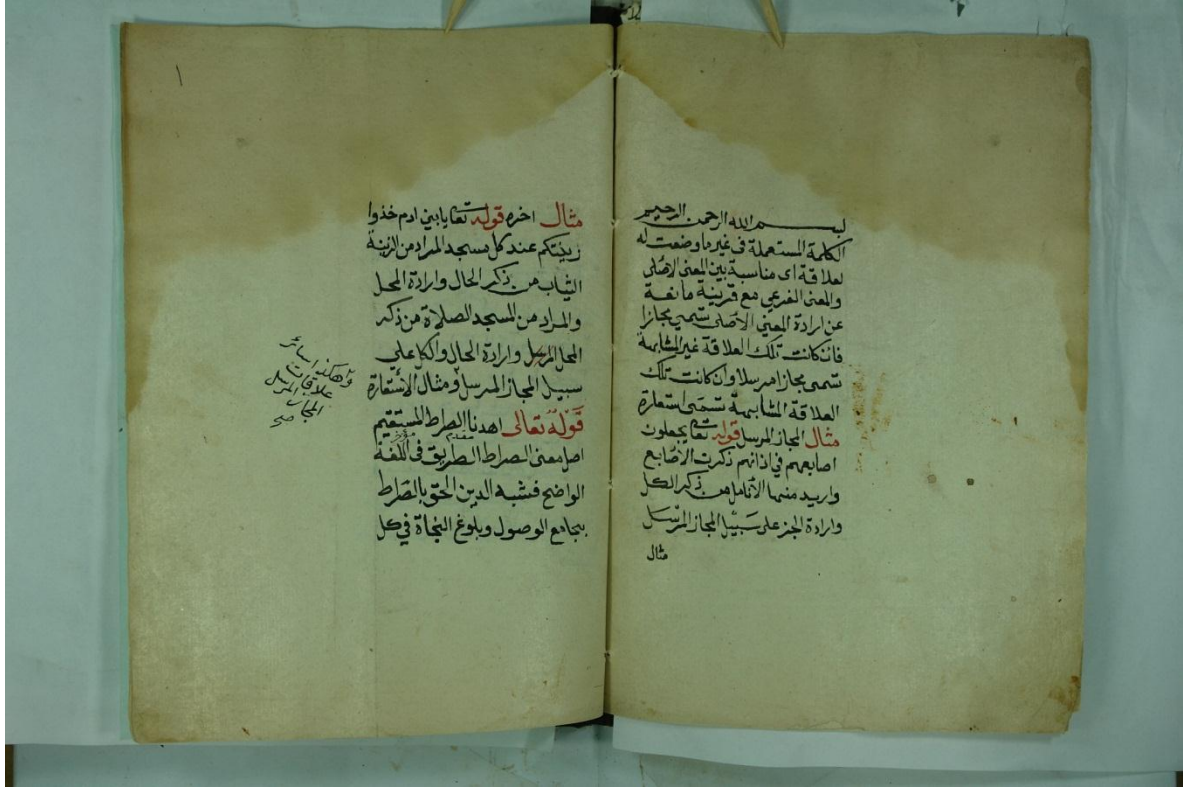 بسم الله الرحمن الرحيم
الكلمة المستعملة فى غير ما وضعت له
لعلاقة اى مناسبة بين المعنى الاصلى
والمعنى الفرعي مع قرينة مانعة
عن ارادة المعنى الاصلى تسمى مجازا
فان كانت تلك العلاقة غير المشابهة
تسمى مجازا مرسلا وان كانت تلك
العلاقة المشابهة تسمى استعارة
مثال المجاز المرسل قوله تعا يجعلون
اصابعهم في اذانهم ذكرت الاصابع
واريد منها الانامل من ذكر الكل
وارادة الجز على سبيل المجاز المرسل
مثال
١
مثال اخره قوله تعا يا بنى ادم خذوا
زينتكم عند كل مسجد المراد من الزينة
الثياب من ذكر الحال وارادة المحل
والمراد من المسجد الصلاة من ذكر
المحل وارادة الحال والكل على
سبيل المجاز المرسل ومثال الاستعارة
قوله تعالى اهدنا الصراط المستقيم
اصل معنى الصراط الطريق فى اللغة
مقدم
الواضح فشبه الدين الحق بالصراط
بجامع الوصول وبلوغ النجاة في كل
وهكذا سائر
علاقات
المجاز المرسل
صح